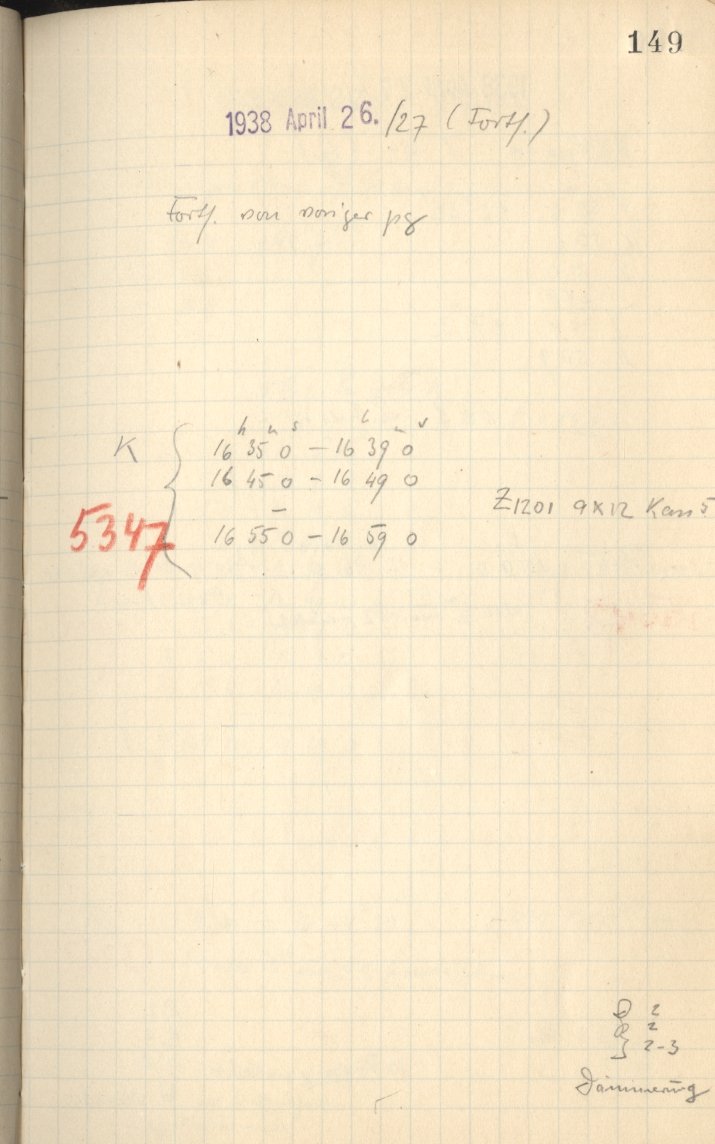 149
1938 April 26./27 (Fortf.)
Fortf. von voriger pg
h m s h m s
K 16 35 0 – 16 39 0
16 45 0 – 16 49 0
5347 16 55 0 – 16 59 0
Z1201 9x12 Kass 5
2
2
2-3
Dämmerung